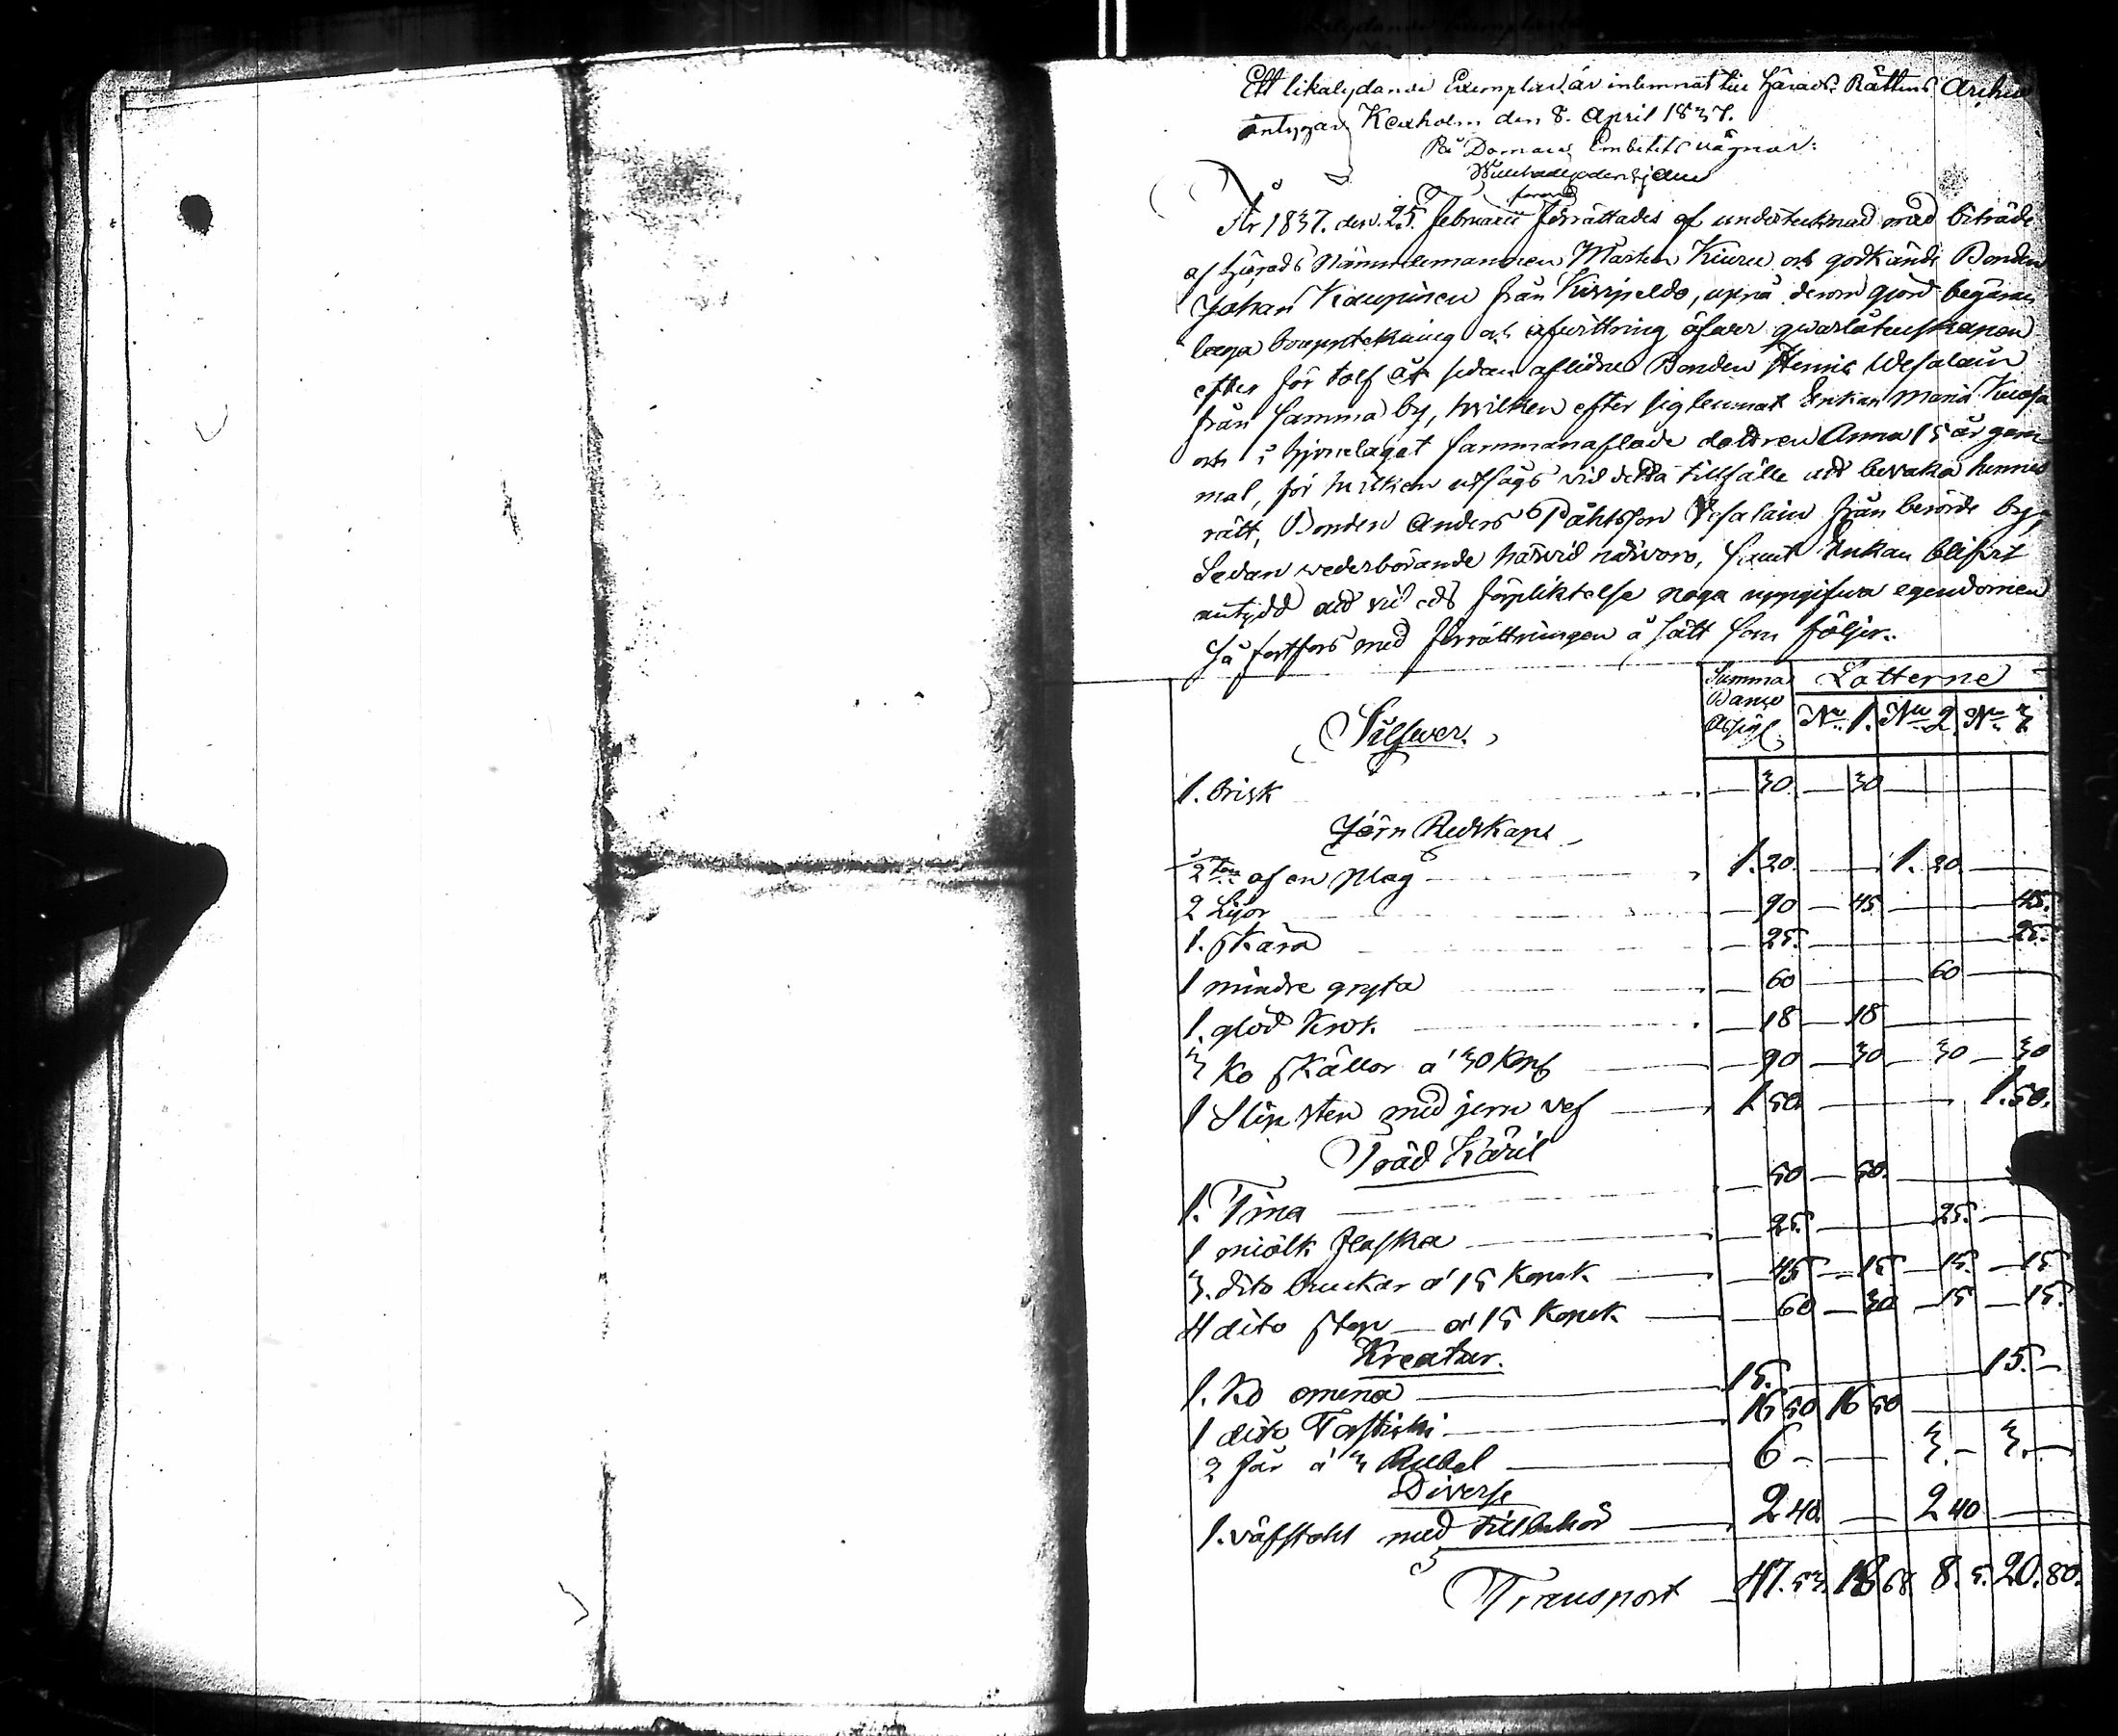 Ett likalydande Exemplar är inlemnat till Härads Rättens Archiv
intygar Kexholm den 8. April 1837.
På Domare Embetets vägnar:
År 1837. den 25. Februarii förrättades af undertecknad med biträde
af Härads Nämndemannen Mårten Kiuru och godkände Bonden
Johan Kauppinen från Kivipeldo, uppå derom gjord begäran
laga bouppteckning och afwittring öfwer qwarlåtenskapen
efter för tolf år sedan aflidne Bonden Henric Wesalain
från samma by, hvilken efter sig lemnat Enkan Maria Kuosa
och i hjonelaget sammanaflade dottren Anna 15 år gam
mal, för hvilken utsågs vid detta tillfälle att bevaka hennes
rätt, Bonden Anders Påhlsson Vesalain från berörde by;
Sedan wederbörande härvid närvoro, samt Enkan blifvit
antydd att vid eds förpliktelse noga uppgifwa egendomen
så fortfors med förrättningen å sätt som följer.
Summa Banco Assign. Lotterne
Silfwer. No 1. No 2. No 3
1. brisk — 30 — 30
Jern Redskap
2 af en plog 1. 20 1. 20
2 Lijor — 90 — 45 45.
1. skära — 25. 25.
1 mindre gryta — 60 60
1. glöd krok — 18 — 18
3 Ko skällor á 30 kop — 90 — 30 — 30 — 30
1 Slipsten med jern vef 1 50. 1. 50.
Träd Käril
1. Tina — 50 — 50.
1 miölk flaska — 25. 25.
3. dito bunkar á 15 Kopek. — 45 — 15 — 15. — 15
4 dito stop — á 15 Kopek. — 60 — 30 — 15 — 15.
Kreatur.
1. Ko omena 15. 15. —
1 dito Tästicki 16 50 16 50
2 får á 3 Rubel 6 — 3. — 3. —
Diverse
1. väfstohl med tillbehör 2 40. 2 40
Transport 47. 53. 18 68. 8. 5. 20. 80.